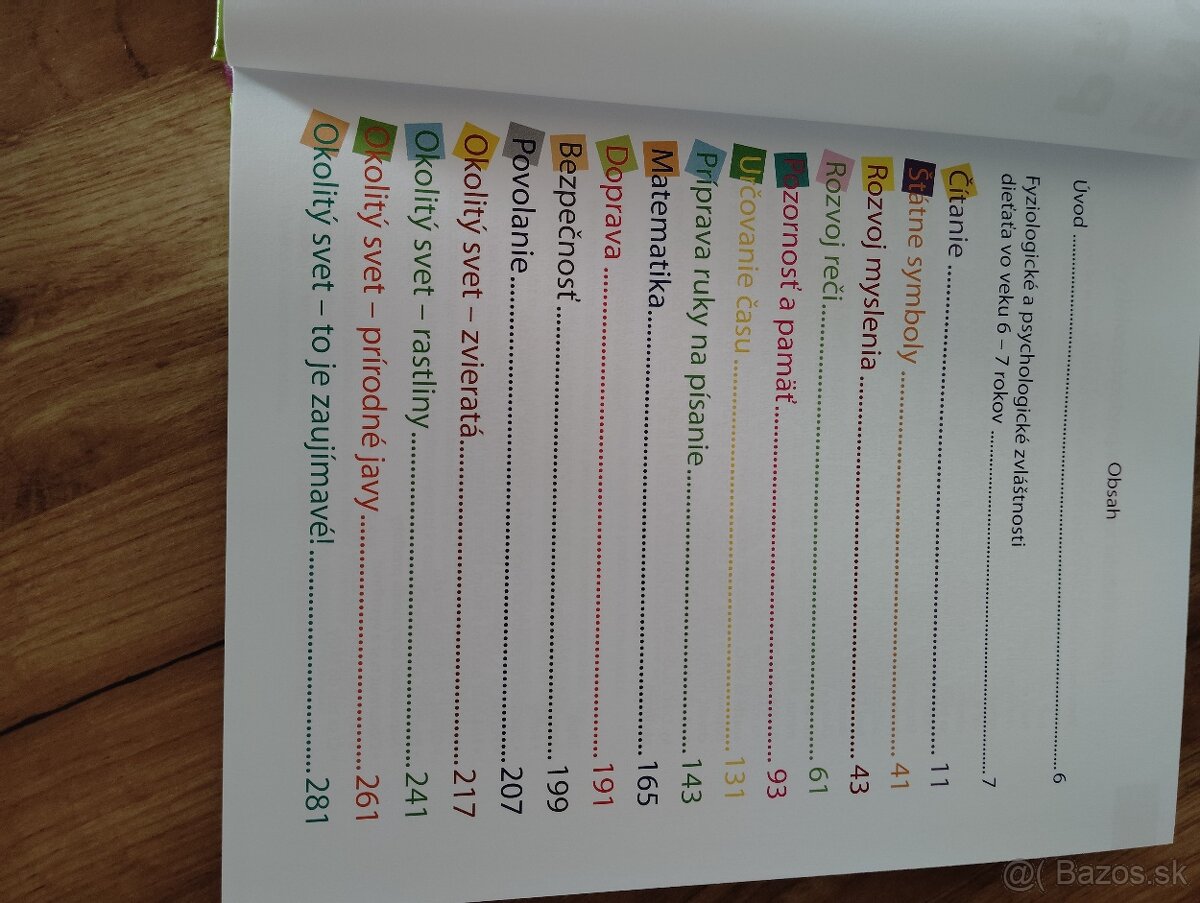 Obsah
Úvod ........................................................................................6
Fyziologické a psychologické zvláštnosti
dieťaťa vo veku 6 – 7 rokov ..........................................................7
Čítanie .......................................................... 11
Štátne symboly .............................................. 41
Rozvoj myslenia ............................................. 43
Rozvoj reči...................................................... 61
Pozornosť a pamäť.......................................... 93
Určovanie času ............................................... 131
Príprava ruky na písanie.................................. 143
Matematika..................................................... 165
Doprava ......................................................... 191
Bezpečnosť..................................................... 199
Povolanie........................................................ 207
Okolitý svet – zvieratá..................................... 217
Okolitý svet – rastliny ..................................... 241
Okolitý svet – prírodné javy ............................. 261
Okolitý svet – to je zaujímavé!......................... 281
@( Bazos.sk